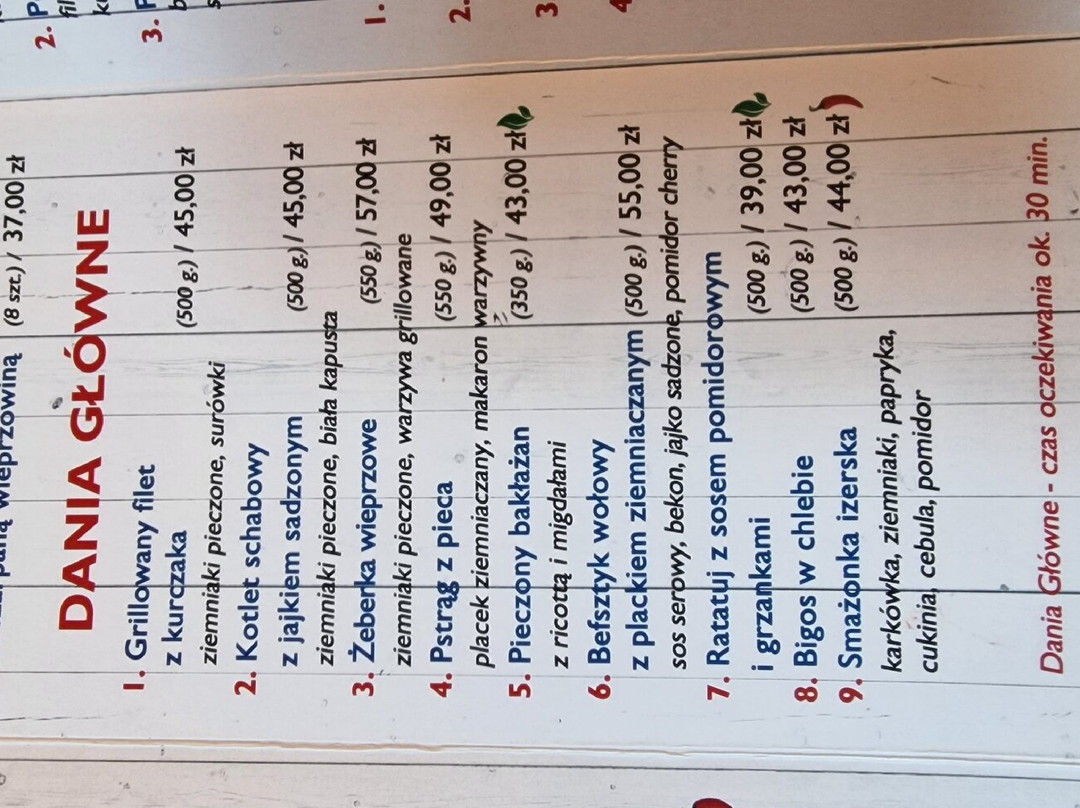 wieprzowiną (8 szt.) / 37,00 zł
DANIA GŁÓWNE
1. Grillowany filet
z kurczaka (500 g.) / 45,00 zł
ziemniaki pieczone, surówki
2. Kotlet schabowy
z jajkiem sadzonym (500 g.) / 45,00 zł
ziemniaki pieczone, biała kapusta
3. Żeberka wieprzowe (550 g.) / 57,00 zł
ziemniaki pieczone, warzywa grillowane
4. Pstrąg z pieca (550 g.) / 49,00 zł
placek ziemniaczany, makaron warzywny
5. Pieczony bakłażan (350 g.) / 43,00 zł
z ricottą i migdałami
6. Befsztyk wołowy
z plackiem ziemniaczanym (500 g.) / 55,00 zł
sos serowy, bekon, jajko sadzone, pomidor cherny
7. Ratatuj z sosem pomidorowym
i grzankami (500 g.) / 39,00 zł
8. Bigos w chlebie (500 g.) / 43,00 zł
9. Smażonka izerska (500 g.) / 44,00 zł
karkówka, ziemniaki, papryka,
cukinia, cebula, pomidor
Dania Główne - czas oczekiwania ok. 30 min.
2.
3.
1.
2.
3
4